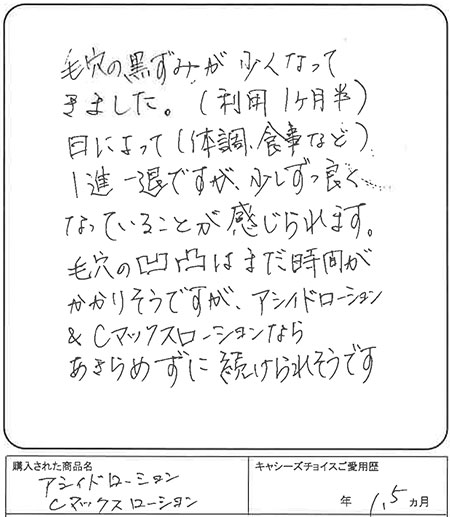 毛穴の黒ずみが少くなって
きました。(利用1ケ月半)
日によって(体調、食事など)
1進一退ですが、少しずつ良く
なっていることが感じられます。
毛穴の凹凸はまだ時間が
かかりそうですが、アシイドローション
& Cマックスローションなら
あきらめずに続けられそうです
購入された商品名
アシイドローション
Cマックスローション
キャシーズチョイスご愛用歴
年 1,5 ヵ月